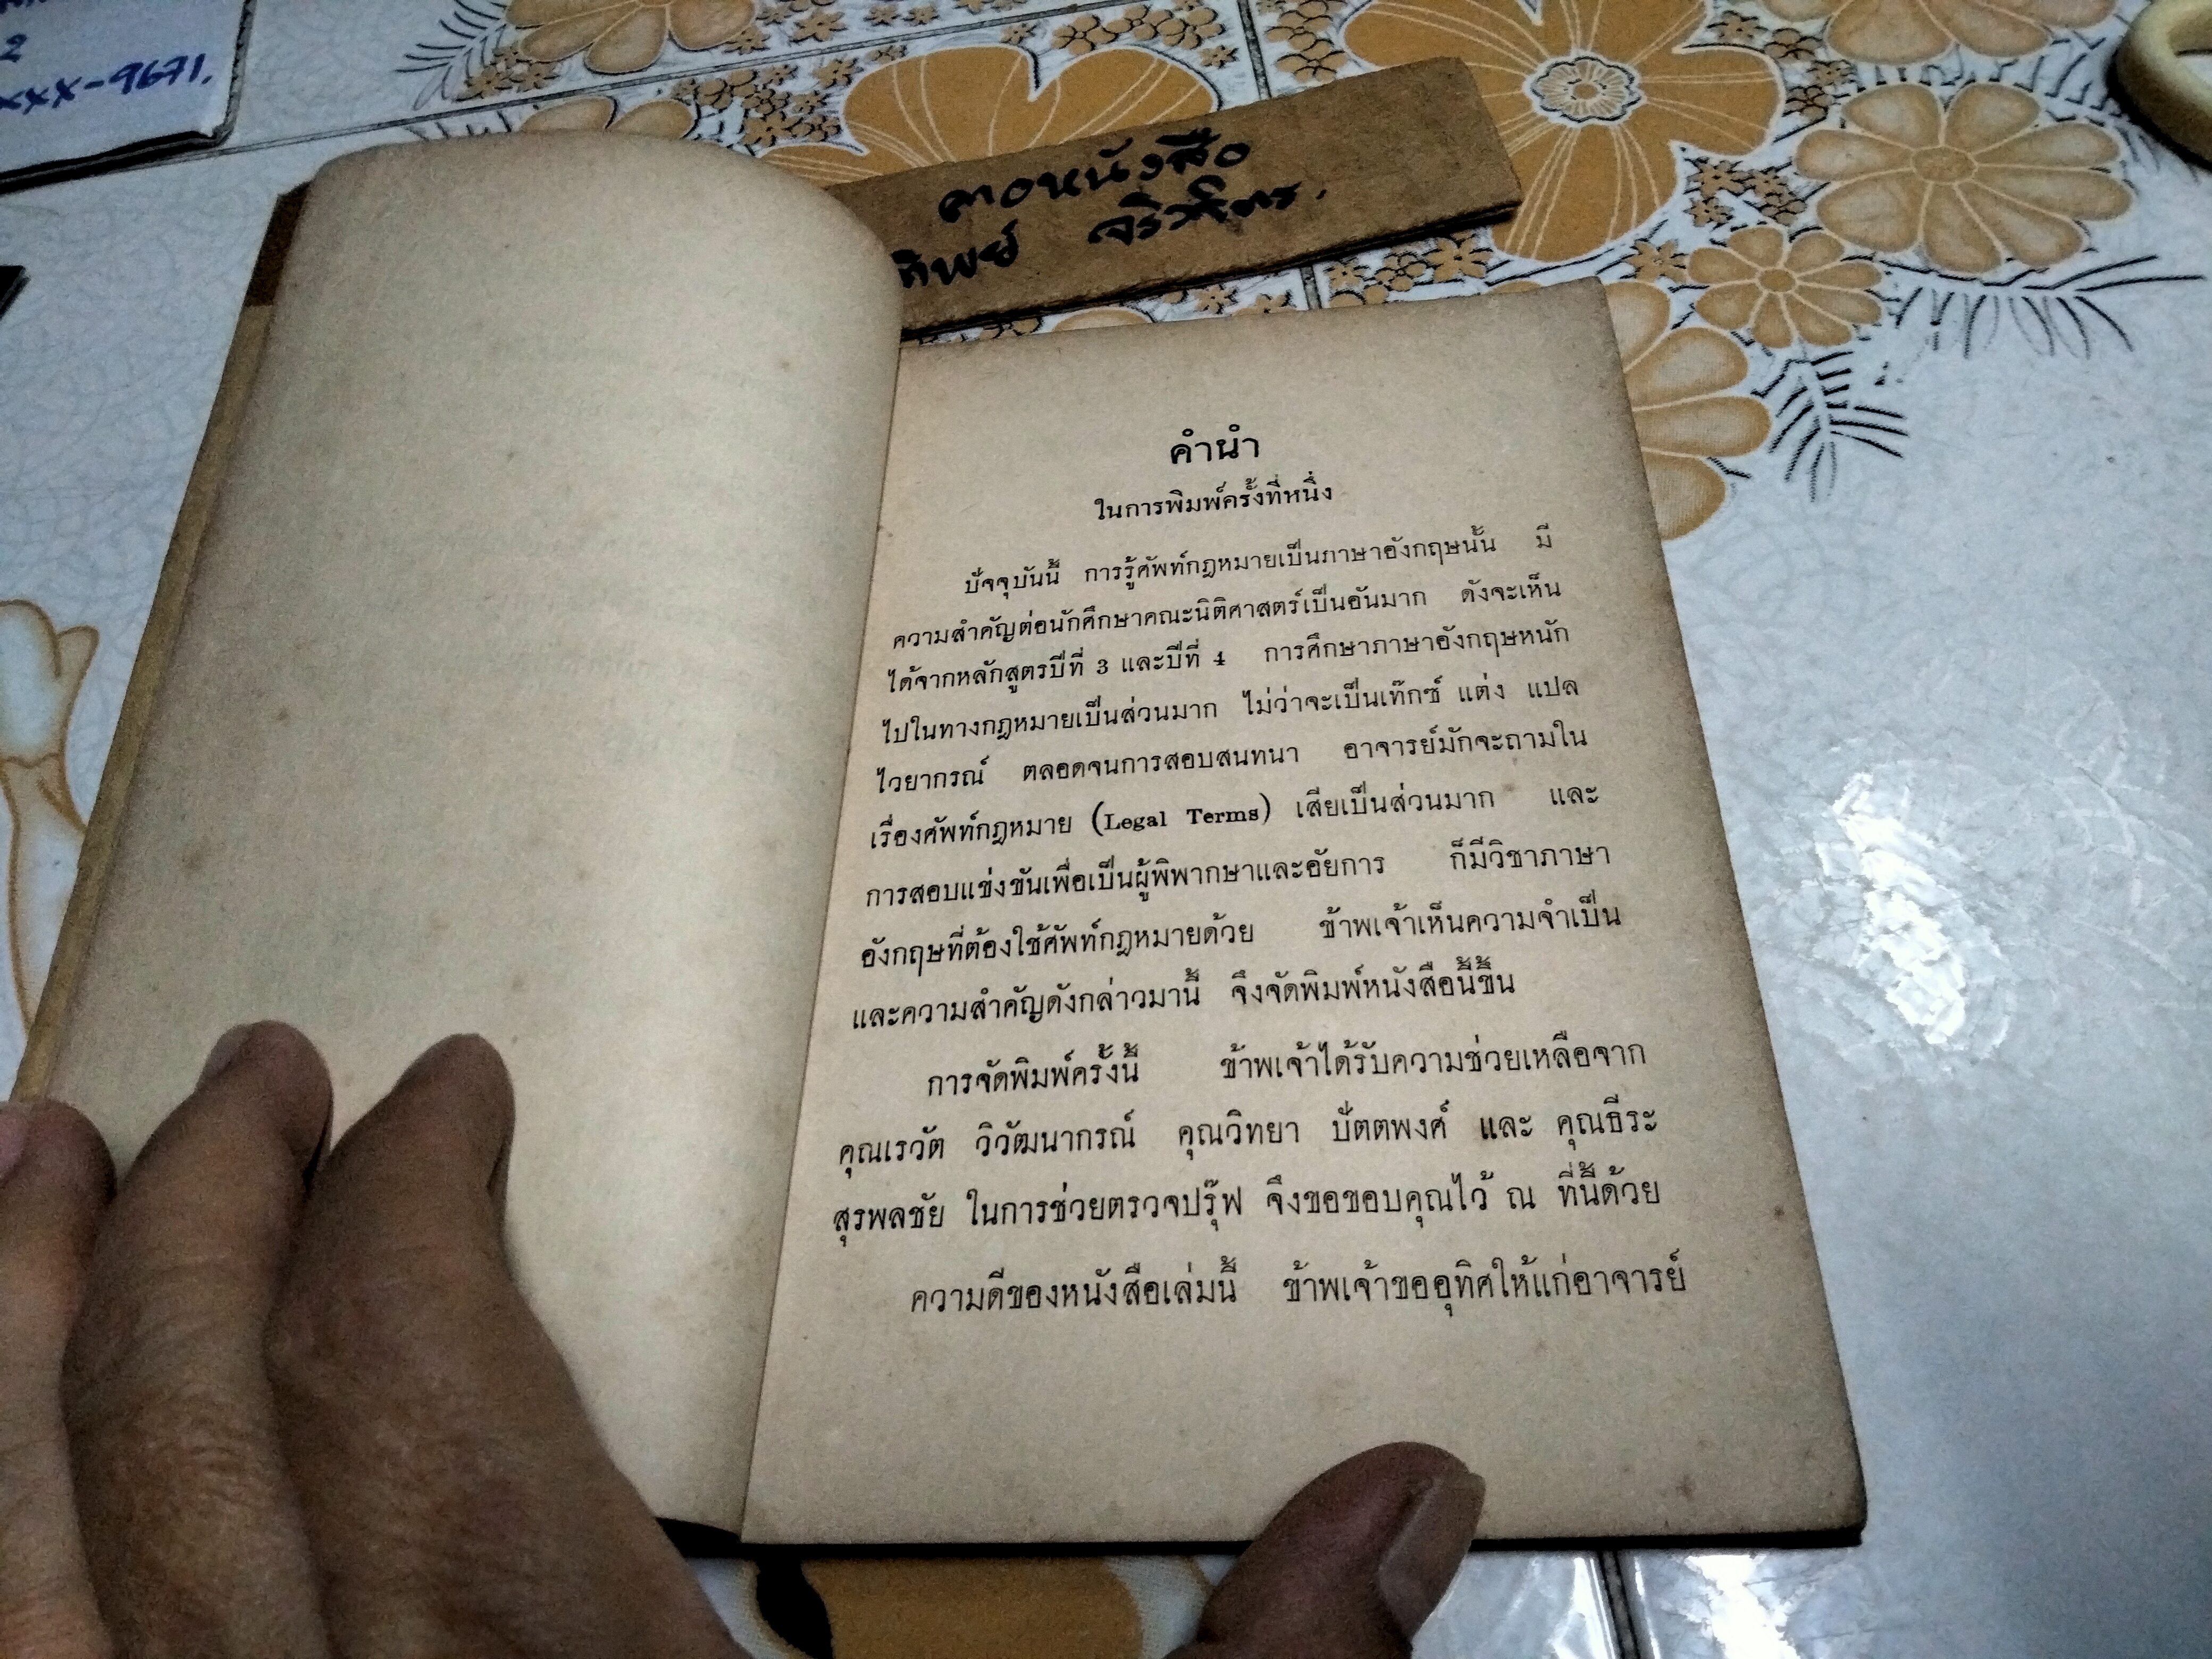 2
xxx-9671.
คำนำ
ในการพิมพ์ครั้งที่หนึ่ง
ปัจจุบันนี้ การรู้ศัพท์กฎหมายเป็นภาษาอังกฤษนั้น มี
ความสำคัญต่อนักศึกษาคณะนิติศาสตร์เป็นอันมาก ดังจะเห็น
ได้จากหลักสูตรปีที่ 3 และปีที่ 4 การศึกษาภาษาอังกฤษหนัก
ไปในทางกฎหมายเป็นส่วนมาก ไม่ว่าจะเป็นเท๊กซ์ แต่ง แปล
ไวยากรณ์ ตลอดจนการสอบสนทนา อาจารย์มักจะถามใน
เรื่องศัพท์กฎหมาย (Legal Terms) เสียเป็นส่วนมาก และ
การสอบแข่งขันเพื่อเป็นผู้พิพากษาและอัยการ ก็มีวิชาภาษา
อังกฤษที่ต้องใช้ศัพท์กฎหมายด้วย ข้าพเจ้าเห็นความจำเป็น
และความสำคัญดังกล่าวมานี้ จึงจัดพิมพ์หนังสือนี้ขึ้น
การจัดพิมพ์ครั้งนี้ ข้าพเจ้าได้รับความช่วยเหลือจาก
คุณเรวัต วิวัฒนากรณ์ คุณวิทยา ปัตตพงศ์ และ คุณธีระ
สุรพลชัย ในการช่วยตรวจปรุ๊ฟ จึงขอขอบคุณไว้ ณ ที่นี้ด้วย
ความดีของหนังสือเล่มนี้ ข้าพเจ้าขออุทิศให้แก่อาจารย์